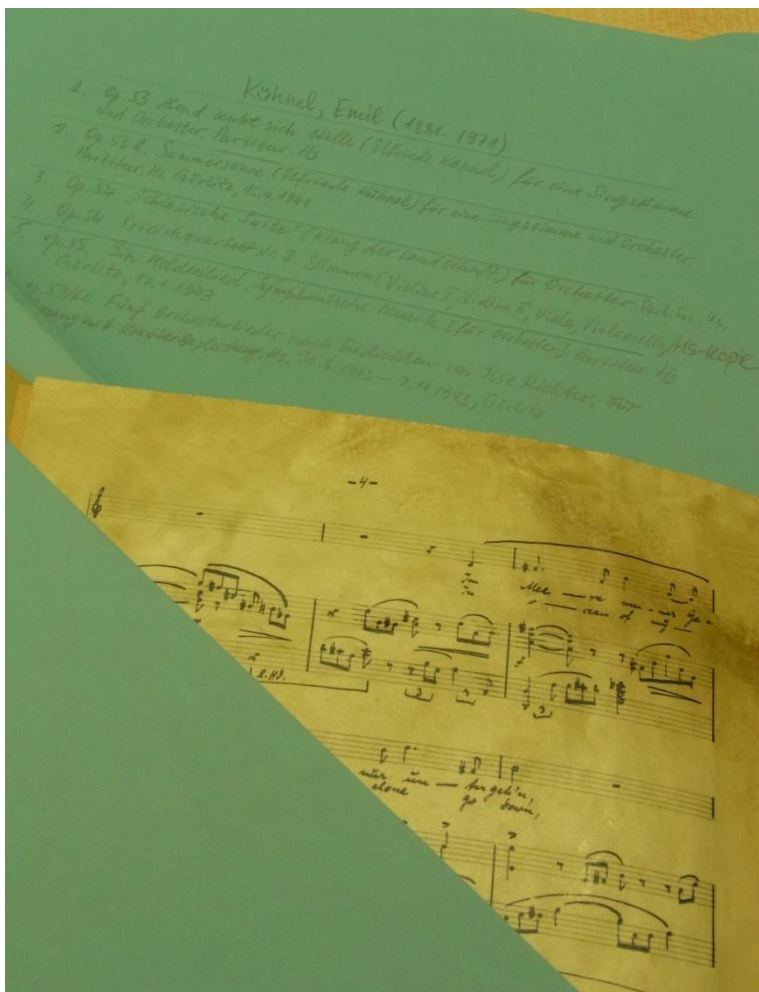 Kühnel, Emil (1881-1971)
1. Op. 53 Abend senkt sich stille (Elfriede Kühnel) für eine Singstimme
und Orchester. Partitur Hs
2. Op. 53 b. Sommersonne (Elfriede Kühnel) für eine Singstimme und Orchester.
Partitur. Hs. Görlitz, 15.4.1941
3. Op. 52a "Schlesische Suite" (Klang der Landschaft) für Orchester. Partitur. Hs.
4. Op. 54 Streichquartett Nr. 2. Stimmen (Violine I, Violine II, Viola, Violoncello) Hs-Kopie
5. Op. 55. Ein Heldenlied. Symphonische Musik [für Orchester]. Partitur. Hs
Görlitz, 17.1.1943
Op. 59/60 Fünf Orchesterlieder nach Gedichten von Ilse Richter. Für
mit Klavierbegleitung. Hs. - 2.11.1943, Görlitz
-4-
Im Mee - re mei - ner Ge -
In o - cean of my
l. Hd.
nur un - tergeh'n,
alone go down,